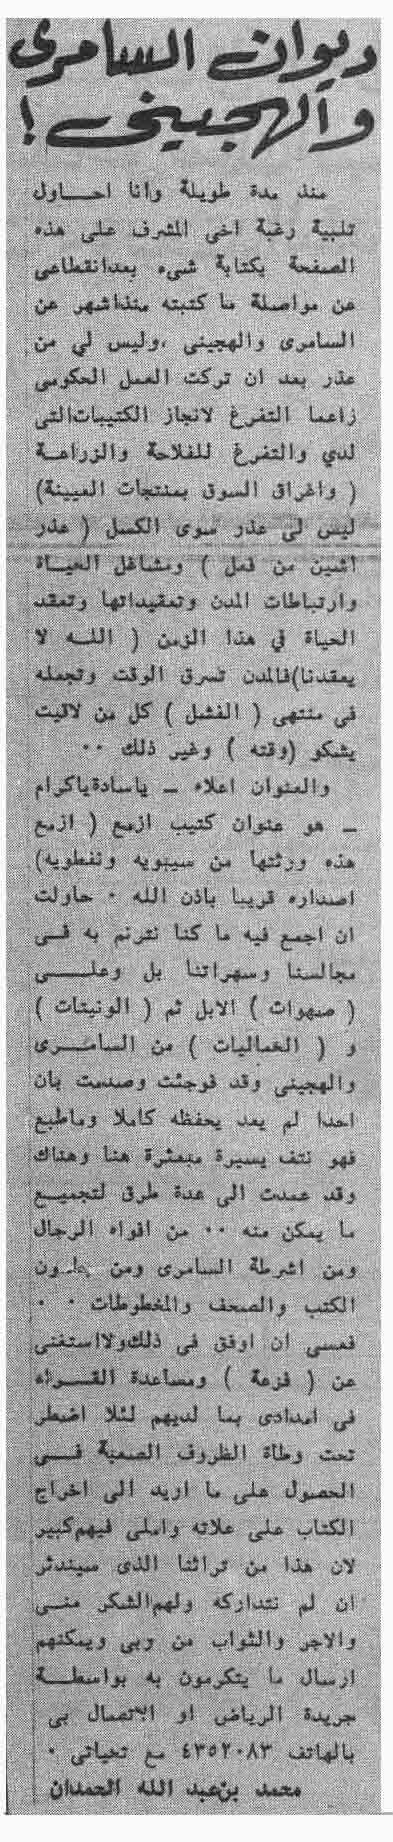 ديوان السامرى
والهجينى !
منذ مدة طويلة وانا احاول
تلبية رغبة اخى المشرف على هذه
الصفحة بكتابة شىء بعدانقطاعى
عن مواصلة ما كتبته منذاشهر عن
السامرى والهجينى ،وليس لي من
عذر بعد ان تركت العمل الحكومى
زاعما التفرغ لانجاز الكتيبات التى
لدي والتفرغ للفلاحة والزراعة
( واغراق السوق بمنتجات العيينة)
ليس لى عذر سوى الكسل ( عذر
اثنين من فمل ) ومشاغل الحياة
وارتباطات المدن وتعقيداتها وتعقد
الحياة في هذا الزمن ( اللـه لا
يعقدنا)فالمدن تسرق الوقت وتجعله
فى منتهى ( الفشل ) كل من لاقيت
يشكو (وقته ) وغير ذلك ٠٠
والعنوان اعلاه ـ ياسادةياكرام
ـ هو عنوان كتيب ازمع ( ازمع
هذه ورثتها من سيبويه ونفطويه)
اصداره قريبا باذن الله ٠ حاولت
ان اجمع فيه ما كنا نترنم به فـى
مجالسنا وسهراتنا بل وعلـــى
( صهوات ) الابل ثم ( الونيتات )
و ( الحماليات ) من السامـرى
والهجينى وقد فوجئت وصدمت بان
احدا لم يعد يحفظه كاملا وماطبع
فهو نتف يسيرة مبعثرة هنا وهناك
وقد عمدت الى عدة طرق لتجميـع
ما يمكن منه ٠٠ من افواه الرجال
ومن اشرطة السامرى ومن بطـون
الكتب والصحف والمخطوطات ٠ ٠
فعسى ان اوفق فى ذلك ولااستغنى
عن ( فزعة ) ومساعدة القــراء
فى امدادى بما لديهم لئلا اضطر
تحت وطأة الظروف الصعبة فـى
الحصول على ما اريد الى اخراج
الكتاب على علاته واملى فيهم كبير
لان هذا من تراثنا الذى سيندثر
ان لم نتداركه ولهم الشكر منـى
والاجر والثواب من ربى ويمكنهم
ارسال ما يتكرمون به بواسطـة
جريدة الرياض او الاتصال بى
بالهاتف ٤٣٥٢٠٨٣ مع تحياتى ٠
محمد بن عبد الله الحمدان